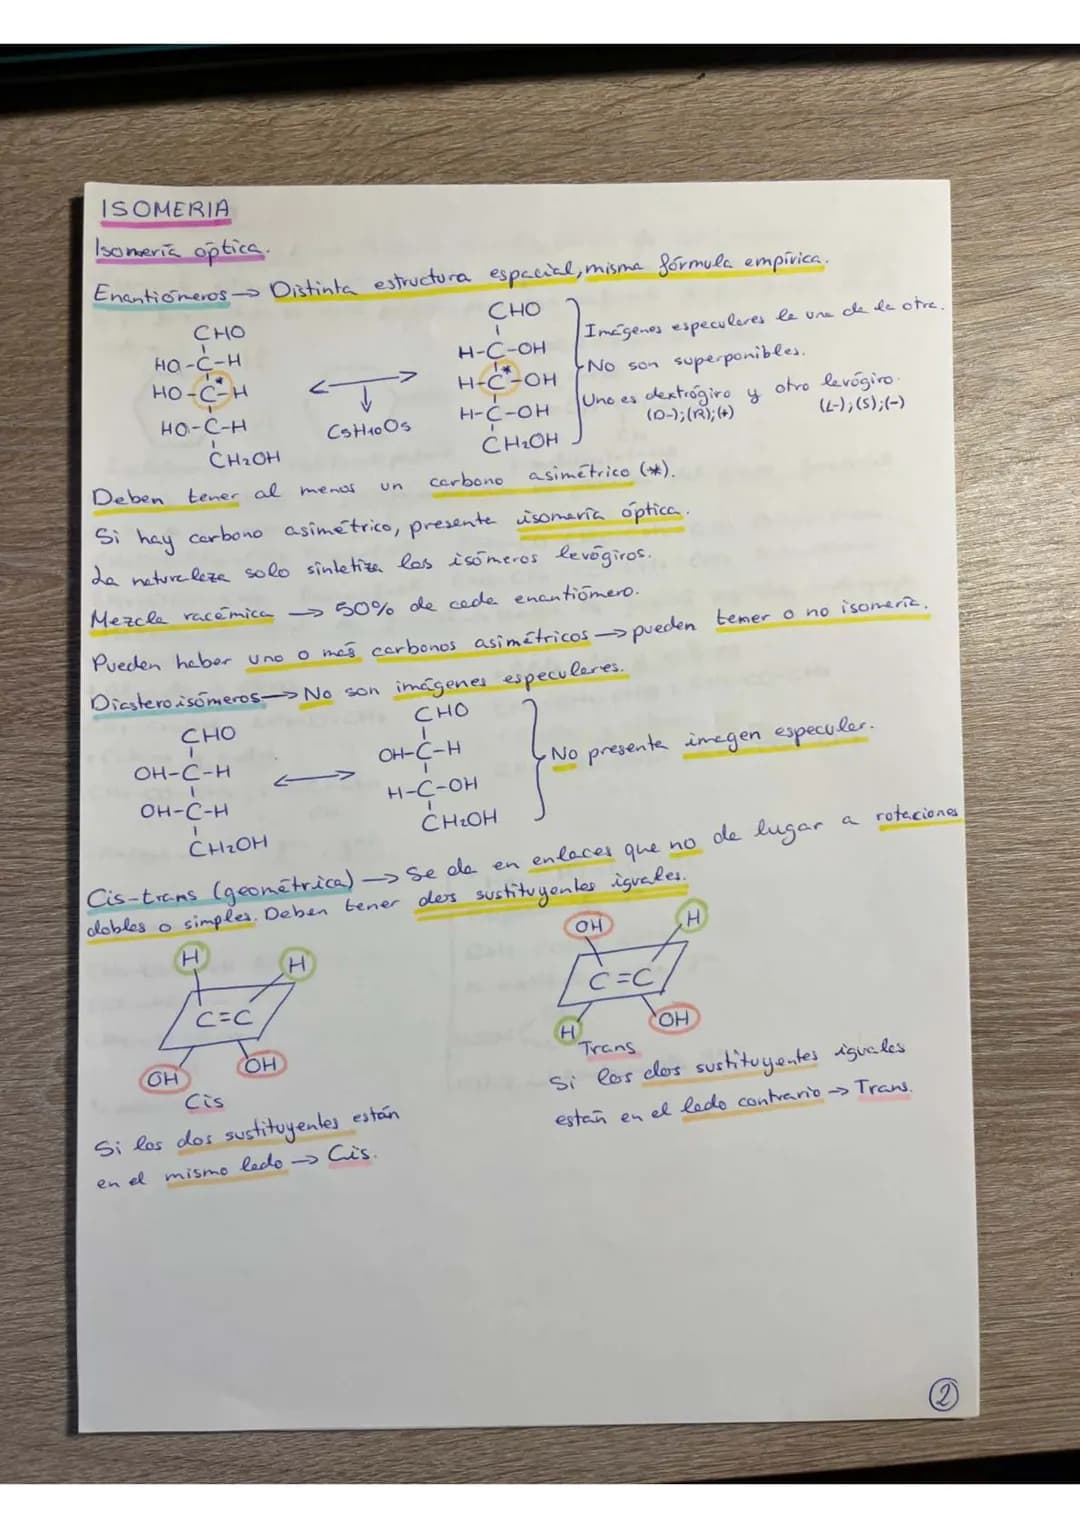 ISOMERIA
Isomería óptica.
Enantiómeros → Distinta estructura espacial, misma fórmula empírica.
CHO
HO-C-H
HO-C*-H
HO-C-H
CH₂OH
C₅H₁₀O₅
CHO
H-C-OH
H-C*-OH
H-C-OH
CH₂OH
Imágenes especulares la una de la otra.
No son superponibles.
Uno es dextrógiro y otro levógiro.
(D-);(R);(+) (L-);(S);(-)
Deben tener al menos un carbono asimétrico (*).
Si hay carbono asimétrico, presenta isomería óptica.
La naturaleza solo sintetiza los isómeros levógiros.
Mezcla racémica → 50% de cada enantiómero.
Pueden haber uno o más carbonos asimétricos → pueden tener o no isomería.
Diasteroisómeros → No son imágenes especulares.
CHO
OH-C-H
OH-C-H
CH₂OH
CHO
OH-C-H
H-C-OH
CH₂OH
No presenta imagen especular.
Cis-trans (geométrica) → Se da en enlaces que no da lugar a rotaciones
dobles o simples. Deben tener dos sustituyentes iguales.
H H
C=C
OH OH
Cis
Si los dos sustituyentes están
en el mismo lado → Cis.
OH H
C=C
H OH
Trans
Si los dos sustituyentes iguales
están en el lado contrario → Trans.
2